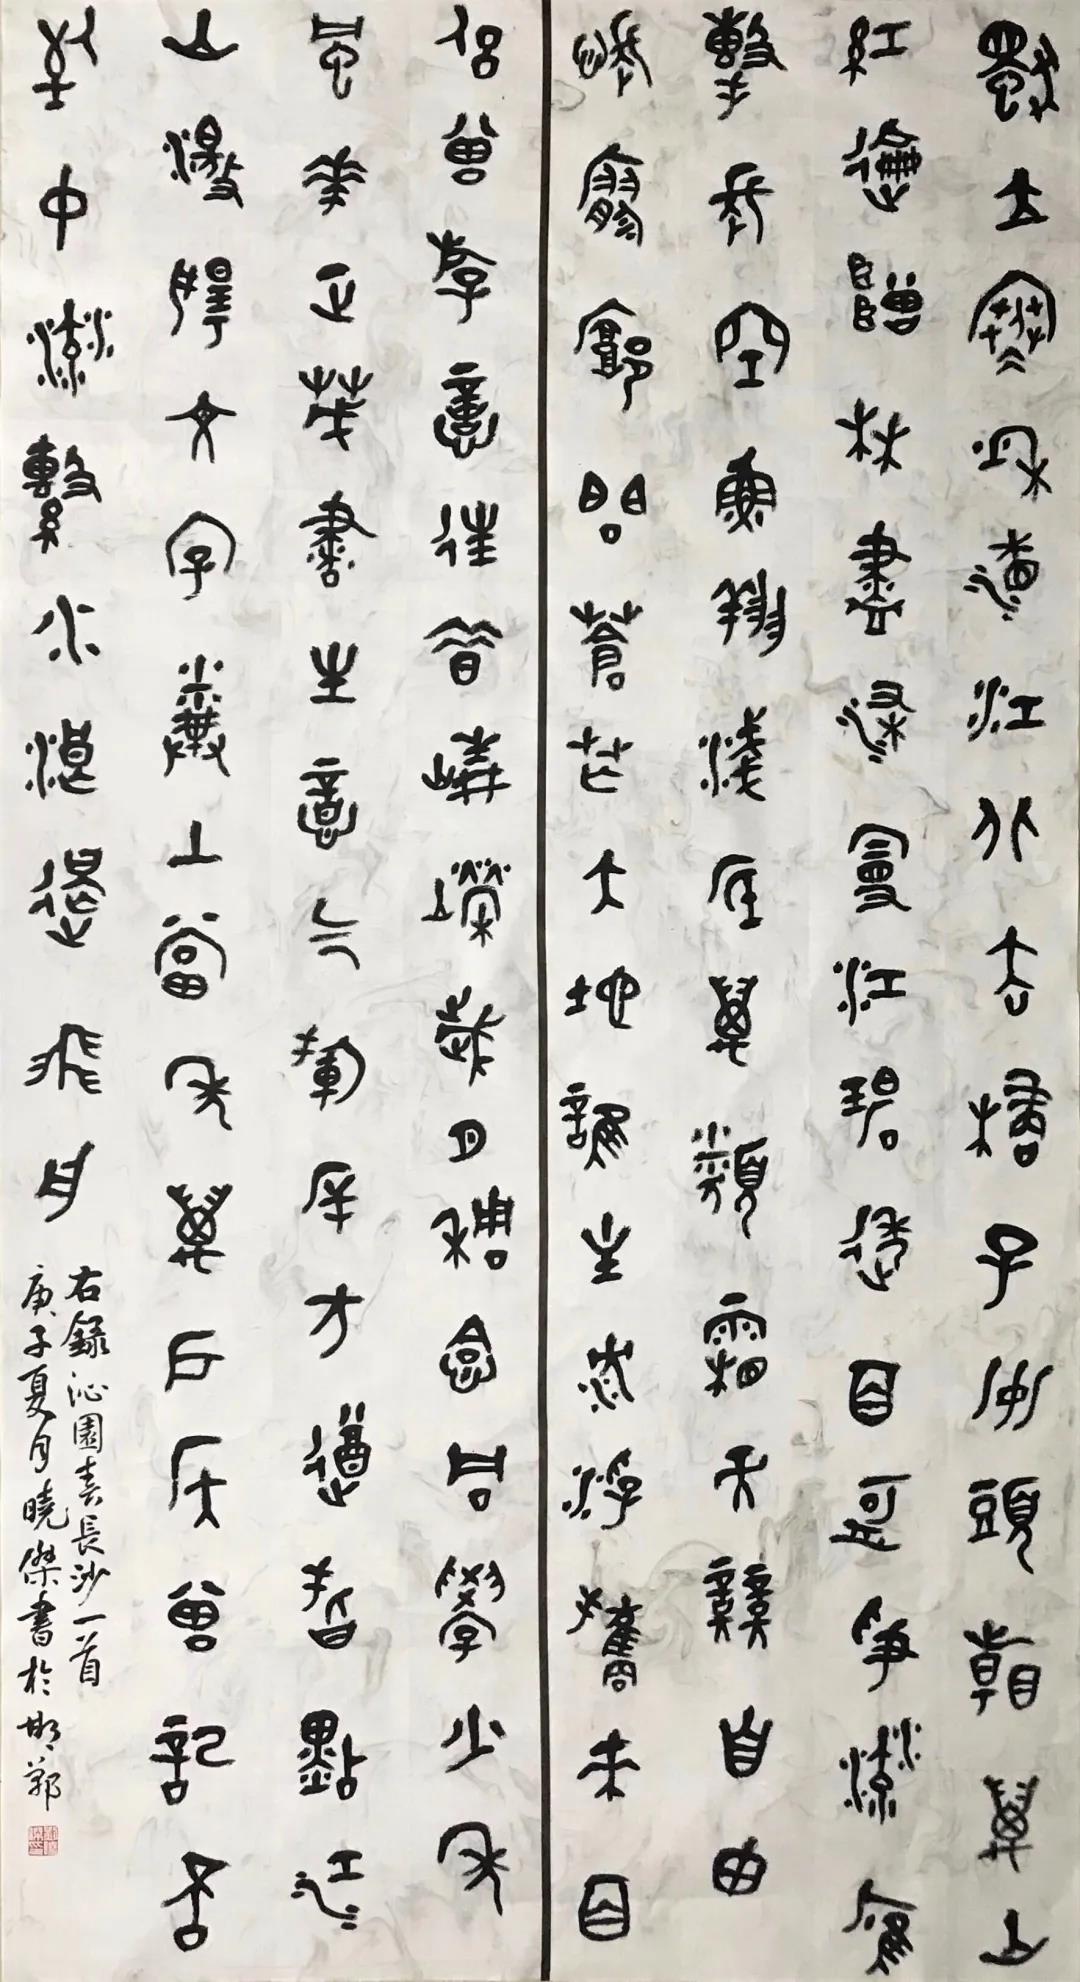 獨立寒秋湘江北去橘子州頭看萬山
紅遍層林盡染漫江碧透百舸爭流鷹
擊長空魚翔淺底萬類霜天競自由
悵寥廓問蒼茫大地誰主沉浮攜來百
侶曾游憶往昔崢嶸歲月稠恰同學少年
風華正茂書生意氣揮斥方遒指點江
山激揚文字糞土當年萬戶侯曾記否
到中流擊水浪遏飛舟
右錄沁園春長沙一首
庚子夏月曉傑書於邯鄲